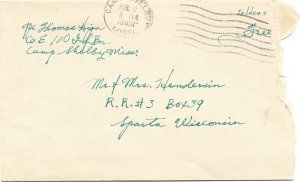 Pfc Thomas Higa
Co E 110 Inf Bn.
Camp Shelby Miss.
Soldiers
Free
Mr & Mrs. Hendersin
R.R.#3 Box 39
Sparta Wisconsin